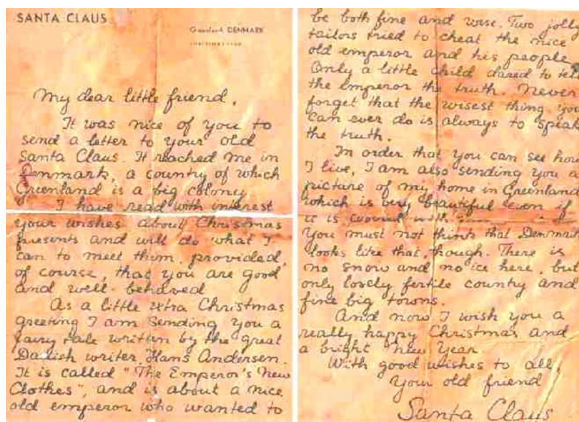 SANTA CLAUS
Greenland, DENMARK
My dear little friend,
It was nice of you to
send a letter to your old
Santa Claus. It reached me in
Denmark, a country of which
Greenland is a big colony.
I have read with interest
your wishes about Christmas
presents and will do what I
can to meet them, provided,
of course, that you are good
and well-behaved.
As a little extra Christmas
greeting I am sending you a
fairy tale written by the great
Danish writer Hans Andersen.
It is called "The Emperor's New
Clothes", and is about a nice
old emperor who wanted to
be both fine and wise. Two jolly
tailors tried to cheat the nice
old emperor and his people.
Only a little child dared to tell
the emperor the truth. Never
forget that the wisest thing you
can ever do is always to speak
the truth.
In order that you can see how
I live, I am also sending you a
picture of my home in Greenland
which is very beautiful even if
it is
You must not think that Denmark
looks like that, though. There is
no snow and no ice here, but
only lovely fertile country and
fine big towns.
And now I wish you a
really happy Christmas and
a bright New Year
With good wishes to all,
Your old friend
Santa Claus